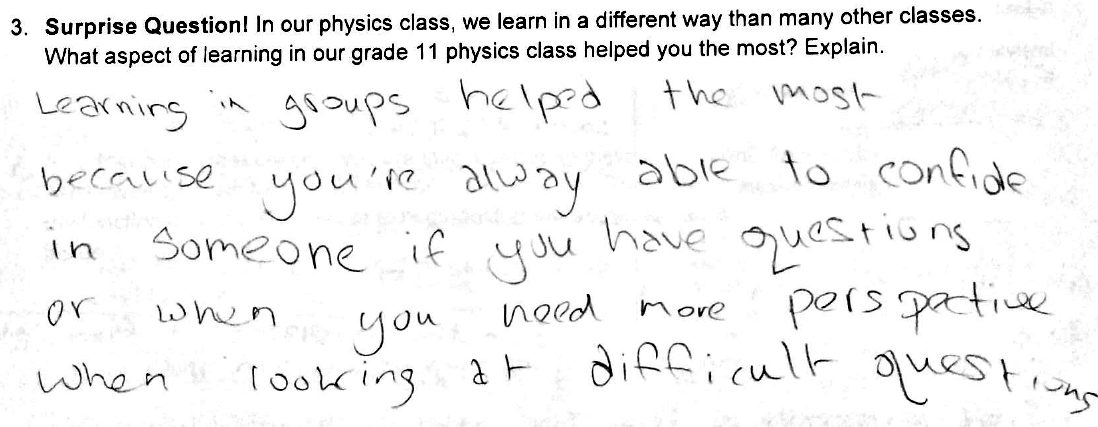 3. Surprise Question! In our physics class, we learn in a different way than many other classes.
What aspect of learning in our grade 11 physics class helped you the most? Explain.
Learning in groups helped the most
because you're alway able to confide
in someone if you have questions
or when you need more perspective
when looking at difficult questions